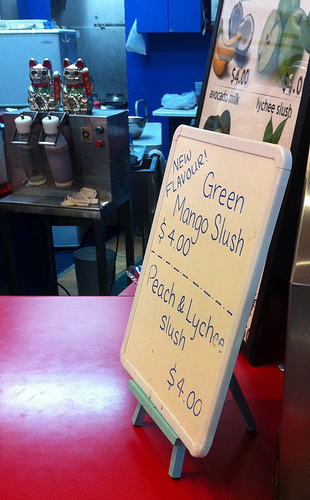 $4.00
avocado milk
lychee slush
NEW
FLAVOUR!
Green
Mango Slush
$4.00
Peach & Lychee
Slush
$4.00